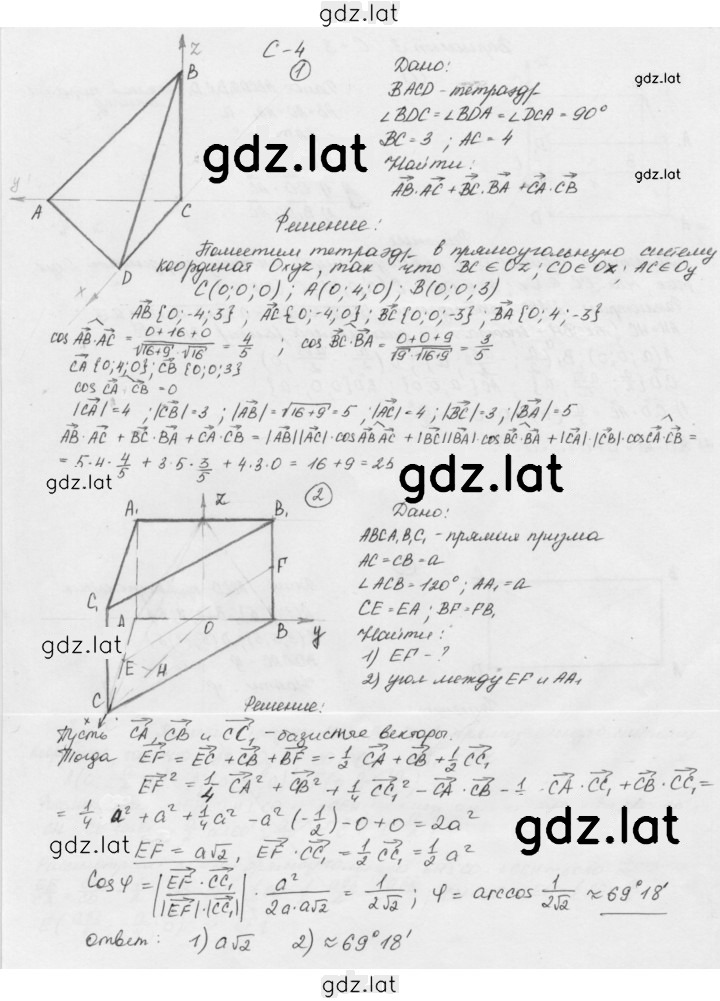 gdz.lat
С-4
①
Дано:
gdz.lat
BACD - тетраэдр
∠BDC = ∠BDA = ∠DCA = 90°
BC = 3 ; AC = 4
Найти:
gdz.lat
AB·AC + BC·BA + CA·CB
gdz.lat
z
B
y
A
C
D
x
Решение:
Поместим тетраэдр в прямоугольную систему
координат Oxyz, так что BC ∈ Oz; CD ∈ Ox; AC ∈ Oy
C(0;0;0) ; A(0;4;0) ; B(0;0;3)
AB{0;-4;3} ; AC{0;-4;0} ; BC{0;0;-3} , BA{0;4;-3}
cos AB·AC = (0+16+0)/(√(16+9)·√16) = 4/5 ; cos BC·BA = (0+0+9)/(√9·√(16+9)) = 3/5
CA{0;4;0}; CB{0;0;3}
cos CA·CB = 0
|CA|=4 ; |CB|=3 ; |AB|=√(16+9)=5 ; |AC|=4; |BC|=3, |BA|=5
AB·AC + BC·BA + CA·CB = |AB||AC|·cos AB AC + |BC||BA| cos BC·BA + |CA|·|CB|·cos CA·CB =
= 5·4·4/5 + 3·5·3/5 + 4·3·0 = 16+9 = 25
gdz.lat
gdz.lat
②
z
A₁
B₁
F
C₁
A
O
B
y
E
H
C
x
gdz.lat
Дано:
ABCA₁B₁C₁ - прямая призма
AC = CB = a
∠ACB = 120° ; AA₁ = a
CE = EA ; BF = FB₁
Найти:
1) EF - ?
2) угол между EF и AA₁
Решение:
Пусть CA, CB и CC₁ - базисные векторы.
Тогда EF = EC + CB + BF = -1/2 CA + CB + 1/2 CC₁
EF² = 1/4 CA² + CB² + 1/4 CC₁² - CA·CB - 1/2·CA·CC₁ + CB·CC₁ =
= 1/4 a² + a² + 1/4 a² - a²(-1/2) - 0 + 0 = 2a²
gdz.lat
gdz.lat
EF = a√2, EF·CC₁ = 1/2 CC₁ = 1/2 a²
Cos φ = |EF·CC₁ / |EF|·|CC₁|| · a²/(2a·a√2) = 1/(2√2) ; φ = arccos 1/(2√2) ≈ 69°18'
ответ: 1) a√2 2) ≈ 69°18'
gdz.lat